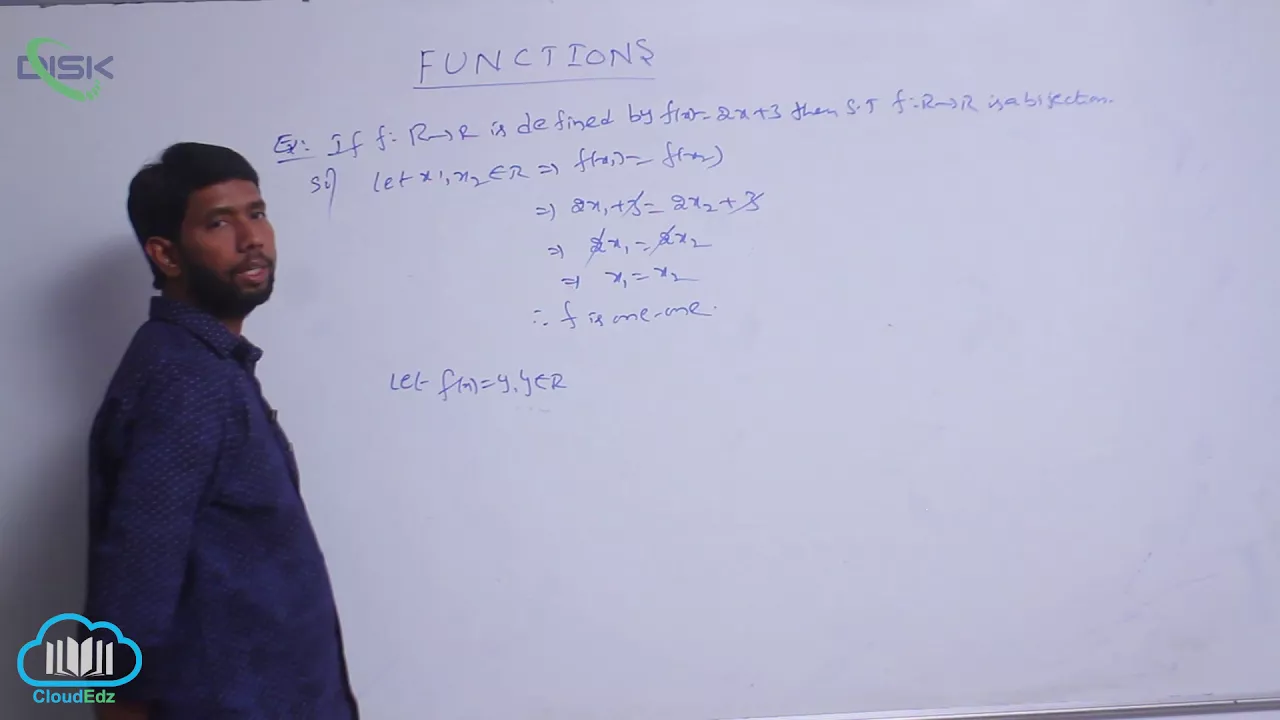 DISK
FUNCTIONS
Ex: If f: R→R is defined by f(x)= 2x+3 then S.T f: R→R is a bijection.
Sol) Let x1, x2 ∈ R ⇒ f(x1) = f(x2)
⇒ 2x1+3 = 2x2+3
⇒ 2x1 = 2x2
⇒ x1 = x2
∴ f is one-one.
Let f(x)=y, y∈R
CloudEdz